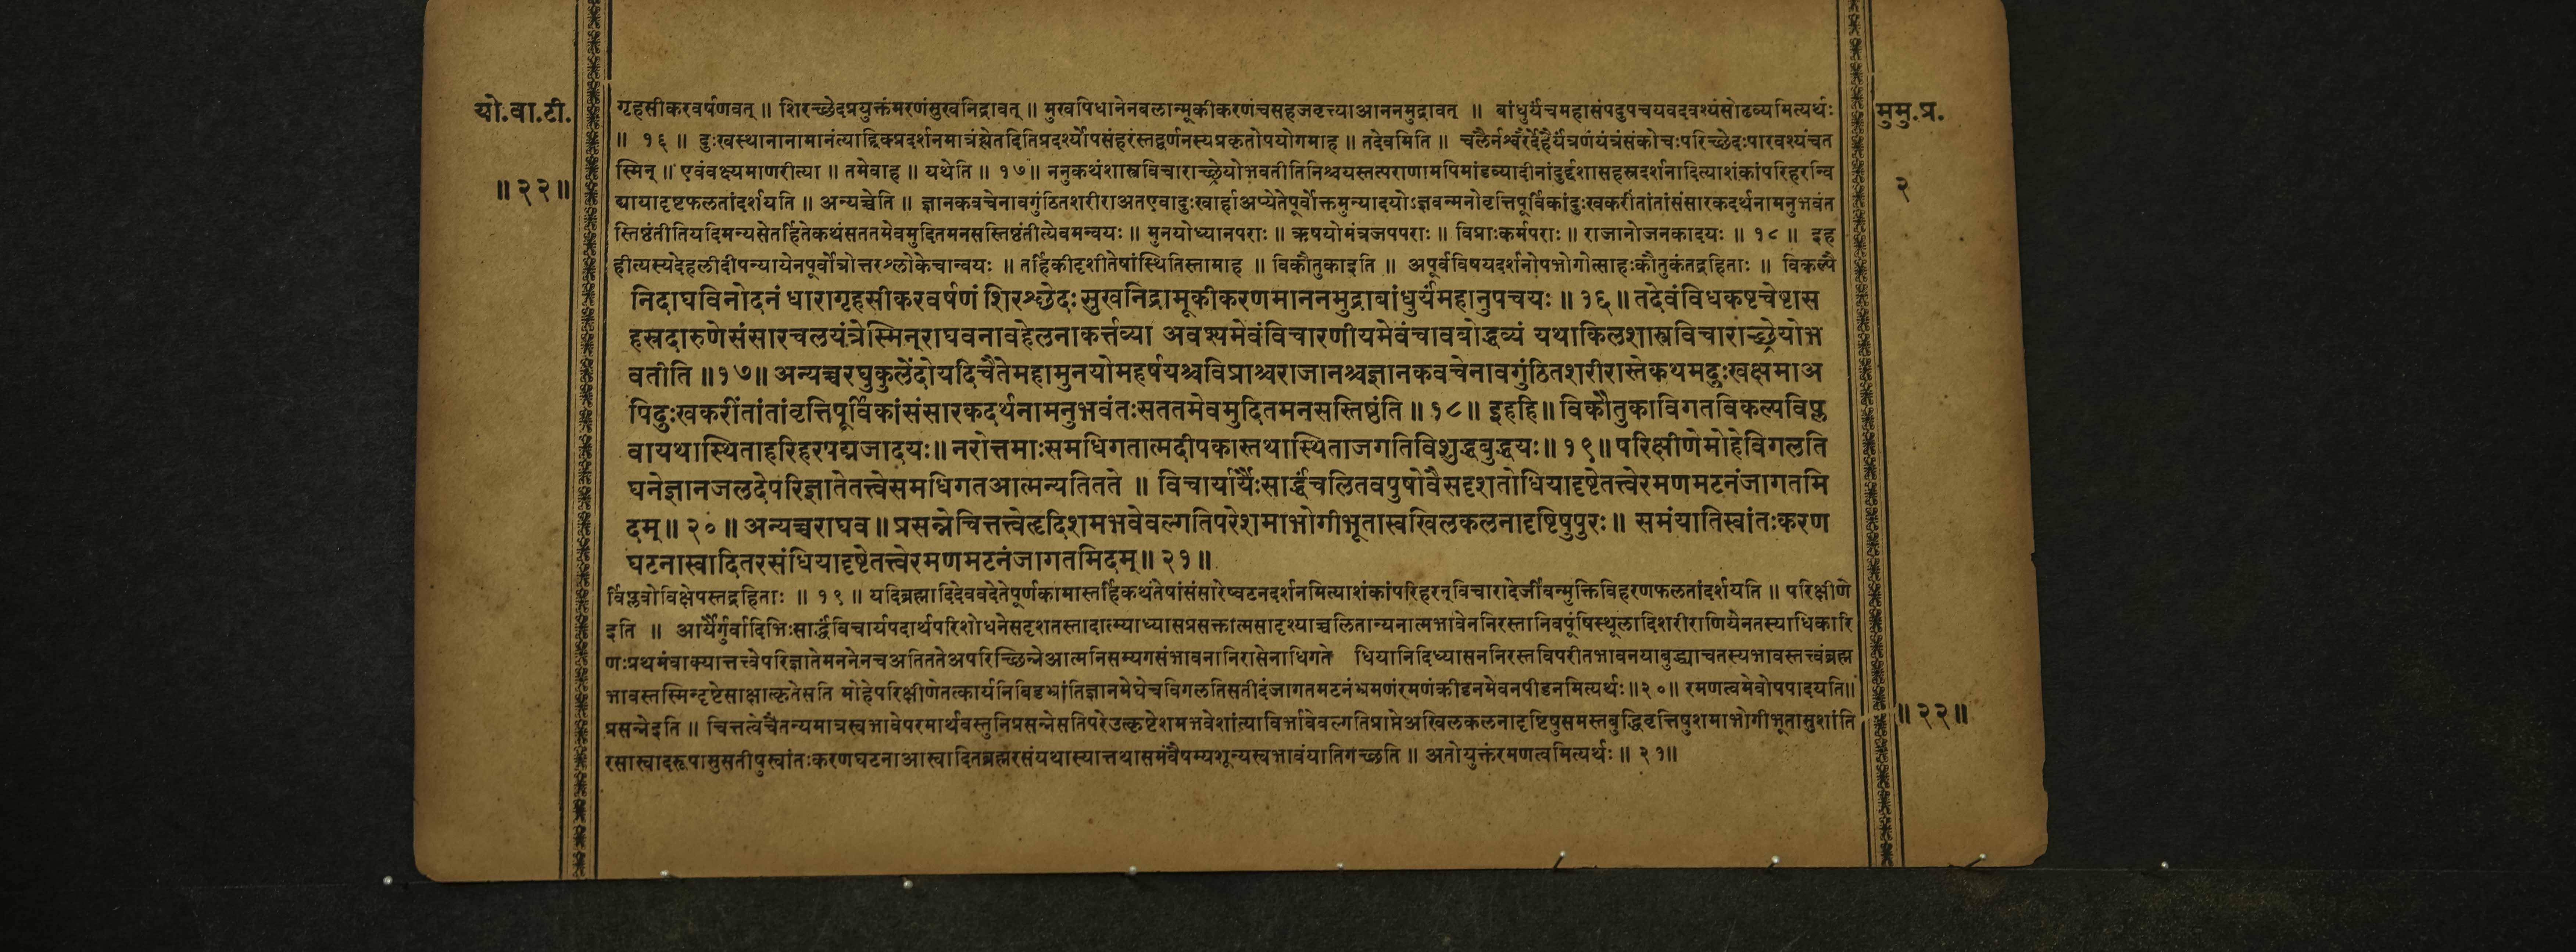 यो.वा.टी.
॥ २२ ॥
मुमु.प्र.
२
गृहसीकरवर्षणवत् ॥ शिरच्छेदप्रयुक्तंमरणंसुखनिद्रावत् ॥ मुखपिधानेनबलान्मूकीकरणंचसहजवृत्त्याआननमुद्रावत् ॥ बांधुर्यंचमहासंपदुपचयवदवश्यंसोढव्यमित्यर्थः
॥ १६ ॥ दुःखस्थानानामानंत्याद्दिक्प्रदर्शनमात्रंह्येतदितिप्रदर्श्योपसंहरंस्तद्वर्णनस्यप्रकृतोपयोगमाह ॥ तदेवमिति ॥ चलैर्नश्वरैर्देहैर्यंत्रणंयंत्रंसंकोचःपरिच्छेदःपारवश्यंचत
स्मिन् ॥ एवंवक्ष्यमाणरीत्या ॥ तमेवाह ॥ यथेति ॥ १७ ॥ ननुकथंशास्त्रविचाराच्छ्रेयोभवतीतिनिश्चयस्तत्पराणामपिमांडव्यादीनांदुर्दशासहस्रदर्शनादित्याशंकांपरिहरन्वि
द्यायादृष्टफलतांदर्शयति ॥ अन्यच्चेति ॥ ज्ञानकवचेनावगुंठितशरीराअतएवादुःखार्हाअप्येतेपूर्वोक्तमुन्यादयोऽज्ञवन्मनोवृत्तिपूर्विकांदुःखकरींतांतांसंसारकदर्थनामनुभवंत
स्तिष्ठंतीतियदिमन्यसेतर्हितेकथंसततमेवमुदितमनसस्तिष्ठंतीत्येवमन्वयः ॥ मुनयोध्यानपराः ॥ ऋषयोमंत्रजपपराः ॥ विप्राःकर्मपराः ॥ राजानोजनकादयः ॥ १८ ॥ इह
हीत्यस्यदेहलीदीपन्यायेनपूर्वोत्रोत्तरश्लोकेचान्वयः ॥ तर्हिकीदृशीतेषांस्थितिस्तामाह ॥ विकौतुकाइति ॥ अपूर्वविषयदर्शनोपभोगोत्साहःकौतुकंतद्रहिताः ॥ विकल्पै
निदाघविनोदनं धारागृहसीकरवर्षणं शिरश्छेदः सुखनिद्रामूकीकरणमाननमुद्राबांधुर्यंमहानुपचयः ॥ १६ ॥ तदेवंविधकष्टचेष्टास
हस्रदारुणेसंसारचलयंत्रेस्मिन्राघवनावहेलनाकर्त्तव्या अवश्यमेवंविचारणीयमेवंचावबोद्धव्यं यथाकिलशास्त्रविचाराच्छ्रेयोभ
वतीति ॥ १७ ॥ अन्यच्चरघुकुलेंदोयदिचैतेमहामुनयोमहर्षयश्चविप्राश्चराजानश्चज्ञानकवचेनावगुंठितशरीरास्तेकथमदुःखक्षमाअ
पिदुःखकरींतांतांवृत्तिपूर्विकांसंसारकदर्थनामनुभवंतःसततमेवमुदितमनसस्तिष्ठंति ॥ १८ ॥ इहहि ॥ विकौतुकाविगतविकल्पविप्ल
वायथास्थिताहरिहरपद्मजादयः ॥ नरोत्तमाःसमधिगतात्मदीपकास्तथास्थिताजगतिविशुद्धबुद्धयः ॥ १९ ॥ परिक्षीणेमोहेविगलति
घनेज्ञानजलदेपरिज्ञातेतत्त्वेसमधिगतआत्मन्यतितते ॥ विचार्यार्यैःसार्द्धंचलितवपुषोवैसदृशतोधियादृष्टेतत्त्वेरमणमटनंजागतमि
दम् ॥ २० ॥ अन्यच्चराघव ॥ प्रसन्नेचित्तत्त्वेहृदिशमभवेवल्गतिपरेशमाभोगीभूतास्वखिलकलनादृष्टिषुपुरः ॥ समंयातिस्वांतःकरण
घटनास्वादितरसंधियादृष्टेतत्त्वेरमणमटनंजागतमिदम् ॥ २१ ॥
र्विप्लवोविक्षेपस्तद्रहिताः ॥ १९ ॥ यदिब्रह्मादिदेववदेतेपूर्णकामास्तर्हिकथंतेषांसंसारेष्वटनदर्शनमित्याशंकांपरिहरन्विचारादेर्जीवन्मुक्तिविहरणफलतांदर्शयति ॥ परिक्षीणे
इति ॥ आर्यैर्गुर्वादिभिःसार्द्धंविचार्यपदार्थपरिशोधनेसदृशतस्तादात्म्याध्यासप्रसक्तात्मसादृश्याच्चलितान्यनात्मभावेननिरस्तानिवपूंषिस्थूलादिशरीराणियेनतस्याधिकारि
णःप्रथमंवाक्यात्तत्त्वेपरिज्ञातेमननेनचअतिततेअपरिच्छिन्नेआत्मनिसम्यगसंभावनानिरासेनाधिगते धियानिदिध्यासननिरस्तविपरीतभावनयाबुद्ध्याचतस्यभावस्तत्त्वंब्रह्म
भावस्तस्मिन्दृष्टेसाक्षात्कृतेसति मोहेपरिक्षीणेतत्कार्यनिबिडभ्रांतिज्ञानमेघेचविगलतिसतीदंजागतमटनंभ्रमणंरमणंक्रीडनमेवनपीडनमित्यर्थः ॥ २० ॥ रमणत्वमेवोपपादयति ॥
प्रसन्नेइति ॥ चित्तत्वेचैतन्यमात्रस्वभावेपरमार्थवस्तुनिप्रसन्नेसतिपरेउत्कृष्टेशमभवेशांत्याविर्भावेवल्गतिप्राप्तेअखिलकलनादृष्टिषुसमस्तबुद्धिवृत्तिषुशमाभोगीभूतासुशांति
रसास्वादरूपासुसतीषुस्वांतःकरणघटनाआस्वादितब्रह्मरसंयथास्यात्तथासमंवैषम्यशून्यस्वभावंयातिगच्छति ॥ अतोयुक्तंरमणत्वमित्यर्थः ॥ २१ ॥
॥ २२ ॥